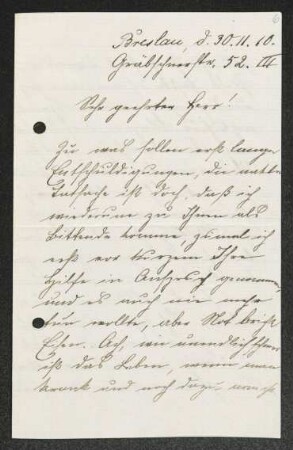 Breslau, d. 30.11.10.
Gräbschnerstr. 52. III
Sehr geehrter Herr!
Zu was sollen erst lange
Entschuldigungen, die
Tatsache ist doch, daß ich
wiederum zu Ihnen als
Bittende komme, zumal ich
erst vor kurzem Ihre
Hilfe in Anspruch genommen,
und es auch nie mehr
tun wollte, aber Not bricht
Eisen. Ach, wie unendlich schwer
ist das Leben, wenn man
krank und noch dazu